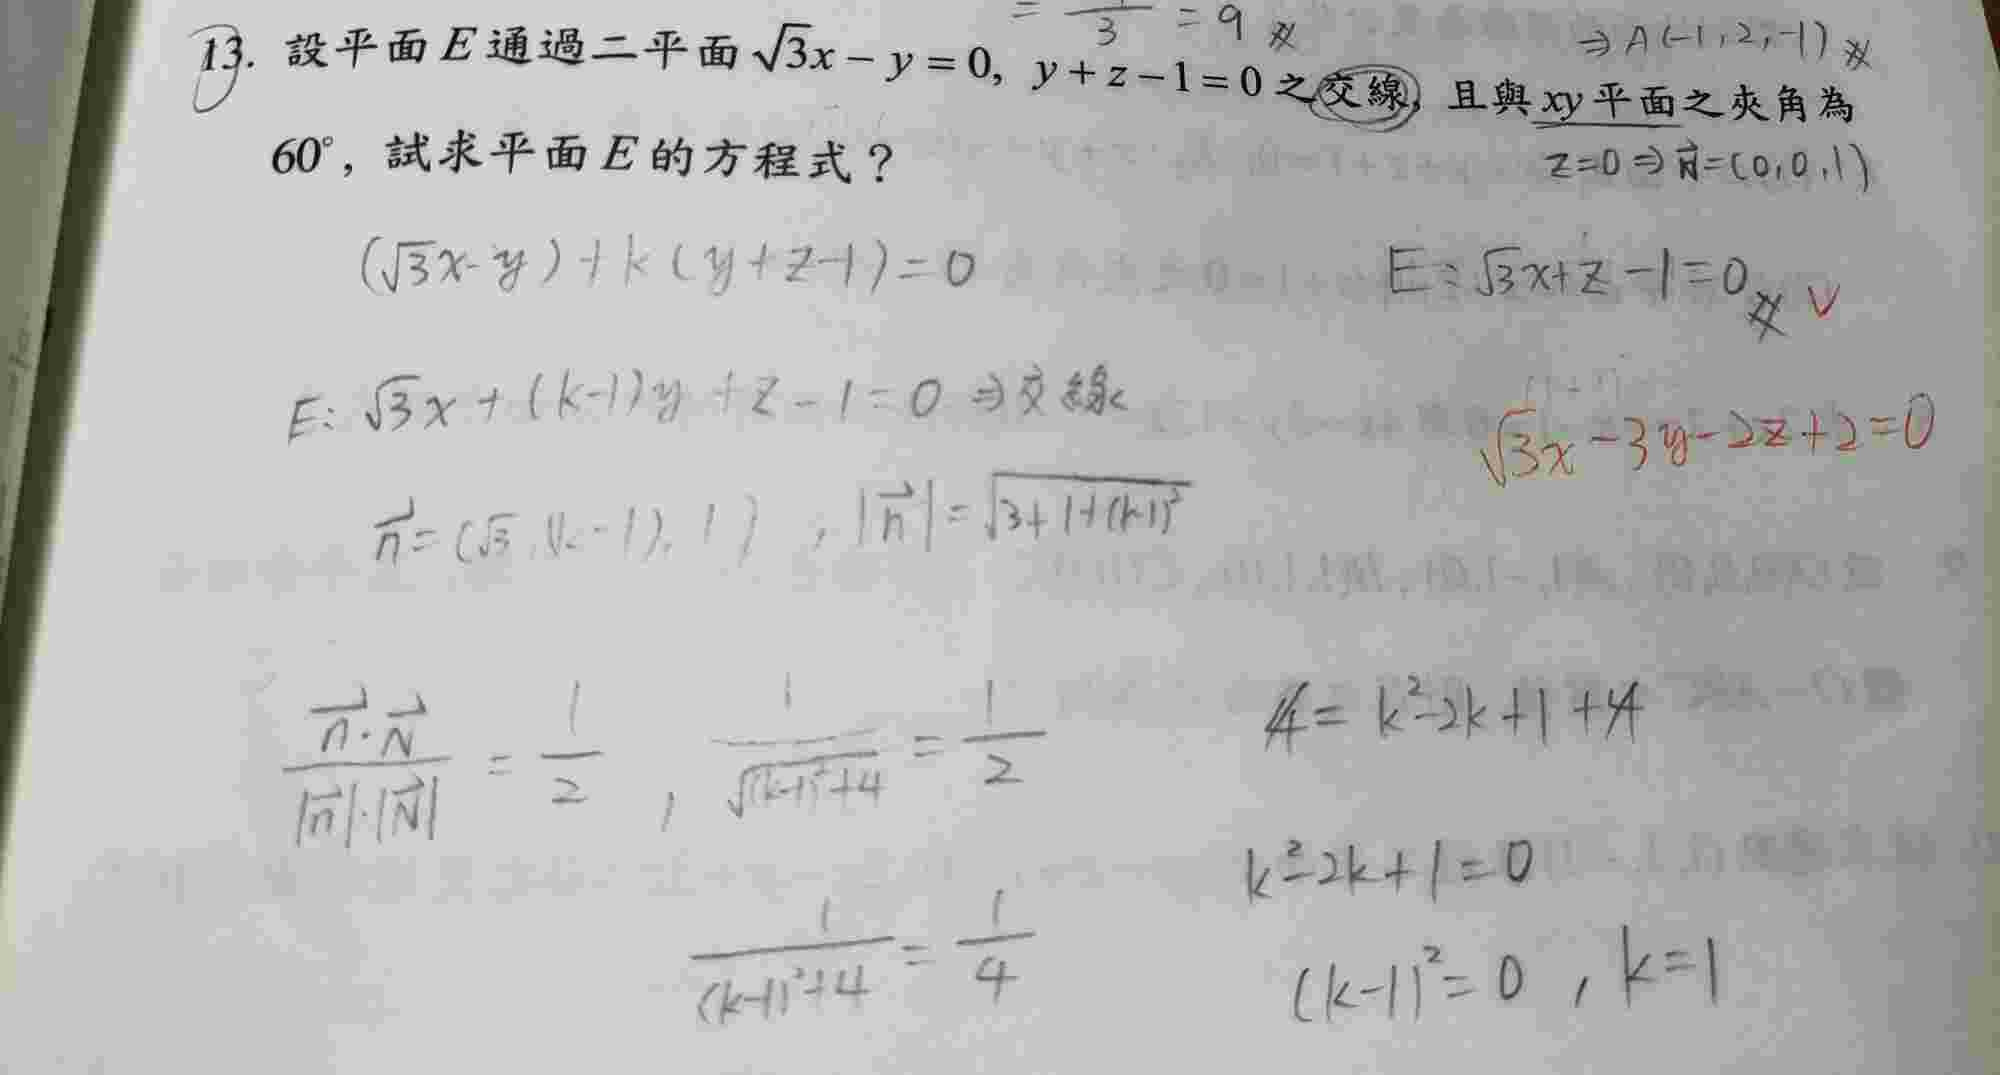 = 3 = 9
⇒ A(-1, 2, -1)
13. 設平面 E 通過二平面 √3x − y = 0, y + z − 1 = 0 之交線, 且與 xy 平面之夾角為
60°, 試求平面 E 的方程式?
z=0 ⇒ N⃗=(0,0,1)
(√3x-y)+k(y+z-1)=0
E: √3x+z-1=0 ∨
E: √3x+(k-1)y+z-1=0 ⇒交線
√3x-3y-2z+2=0
n⃗=(√3,(k-1),1), |n⃗|=√3+1+(k-1)²
n⃗·N⃗/|n⃗|·|N⃗| = 1/2, 1/√(k-1)²+4 = 1/2
4=k²-2k+1+4
k²-2k+1=0
1/(k-1)²+4 = 1/4
(k-1)²=0, k=1